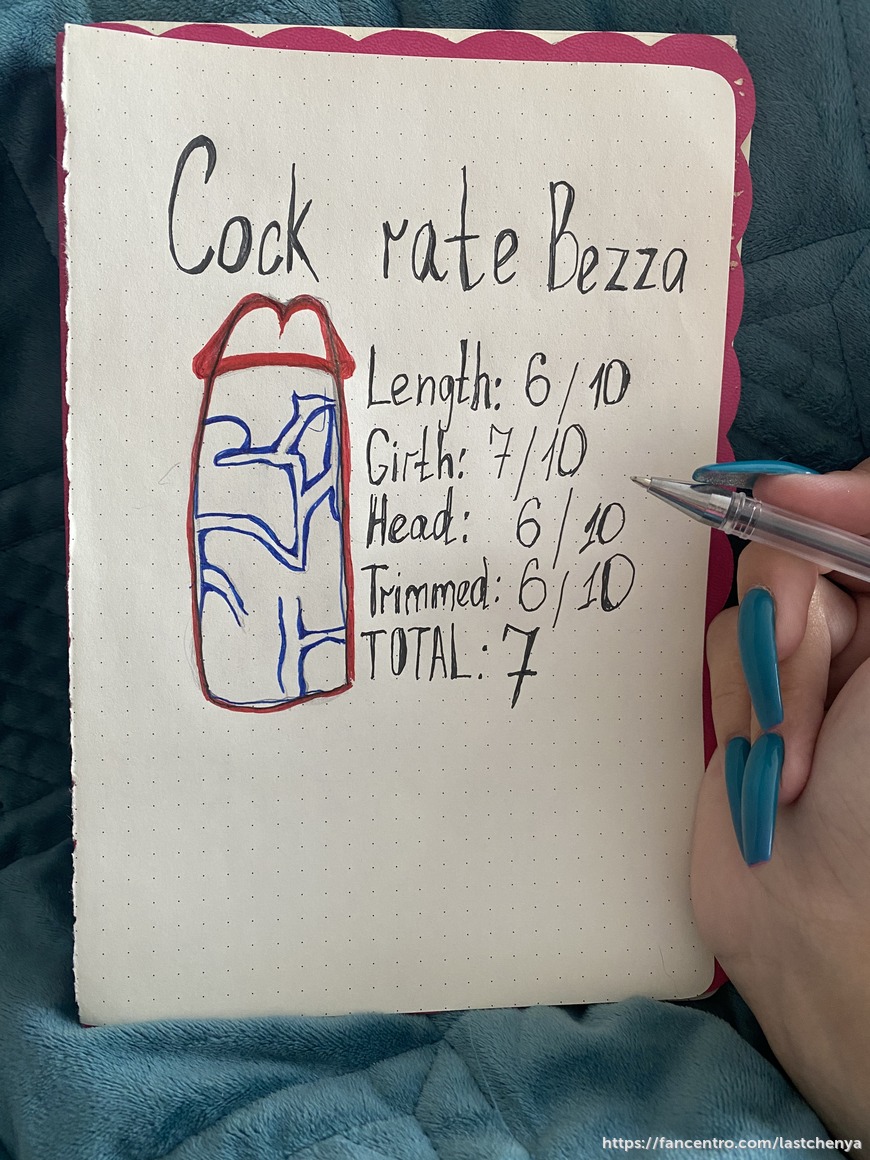 Cock rate Bezza
Length: 6/10
Girth: 7/10
Head: 6/10
Trimmed: 6/10
TOTAL: 7
https://fancentro.com/lastchenya